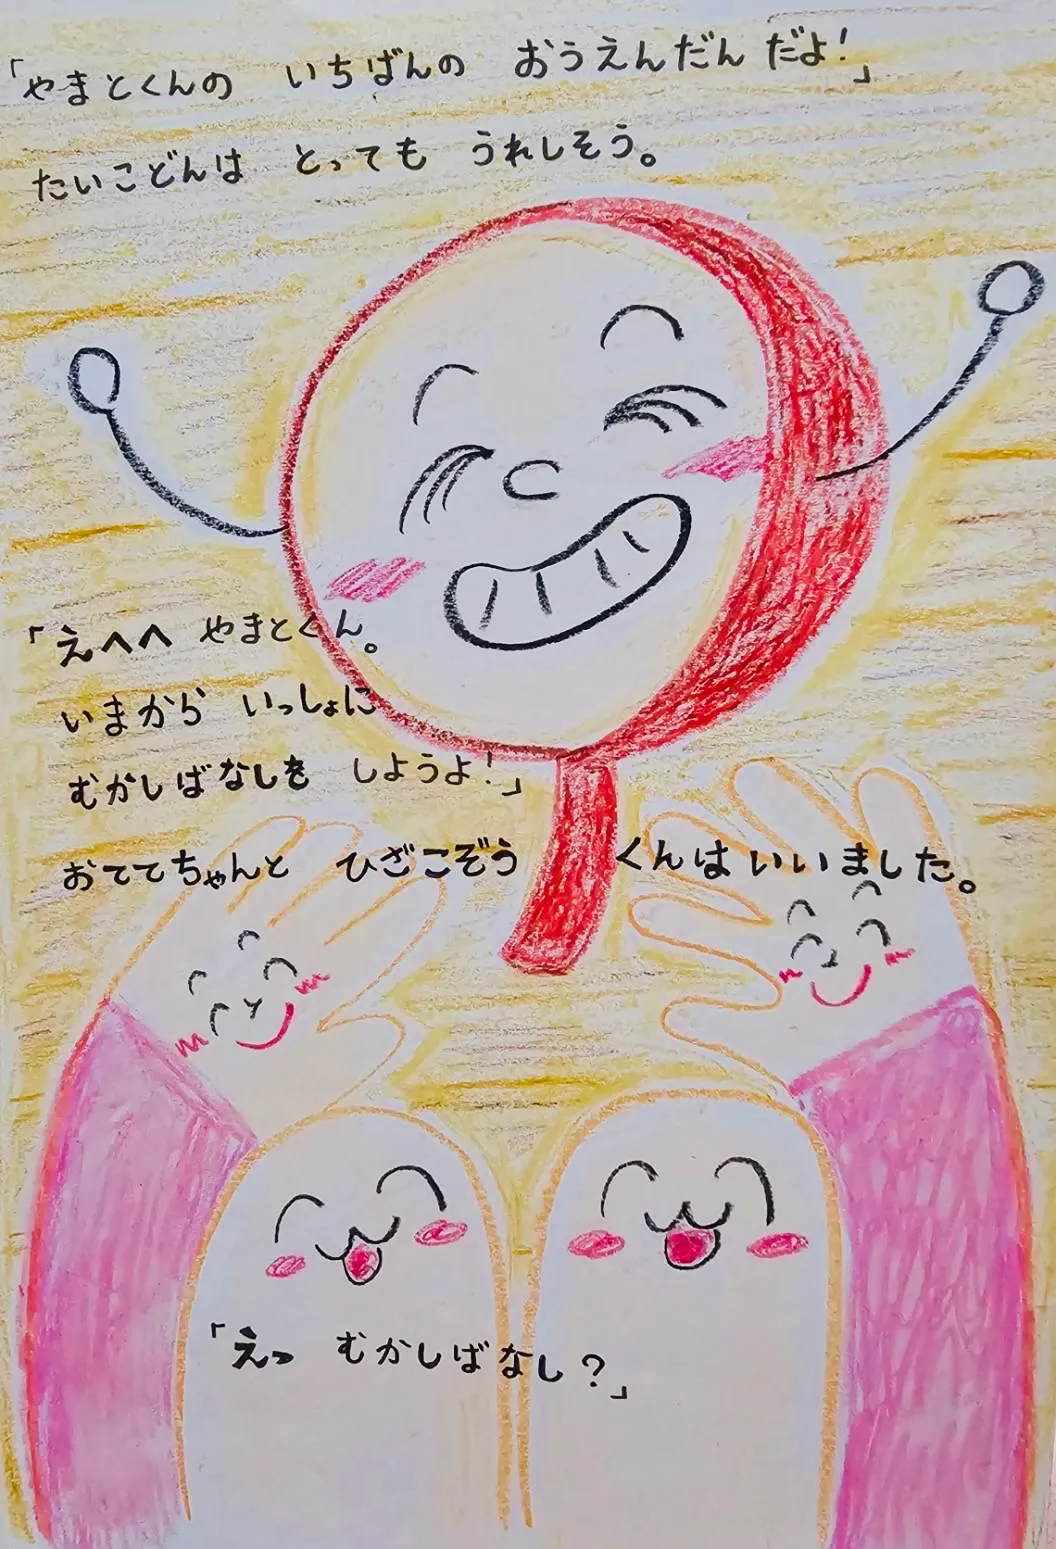 「やまとくんの　いちばんの　おうえんだん だよ！」
たいこどんは　とっても　うれしそう。
「えへへ やまとくん。
いまから　いっしょに
むかしばなしを　しようよ！」
おててちゃんと　ひざこぞう　くんは いいました。
「えっ　むかしばなし？」